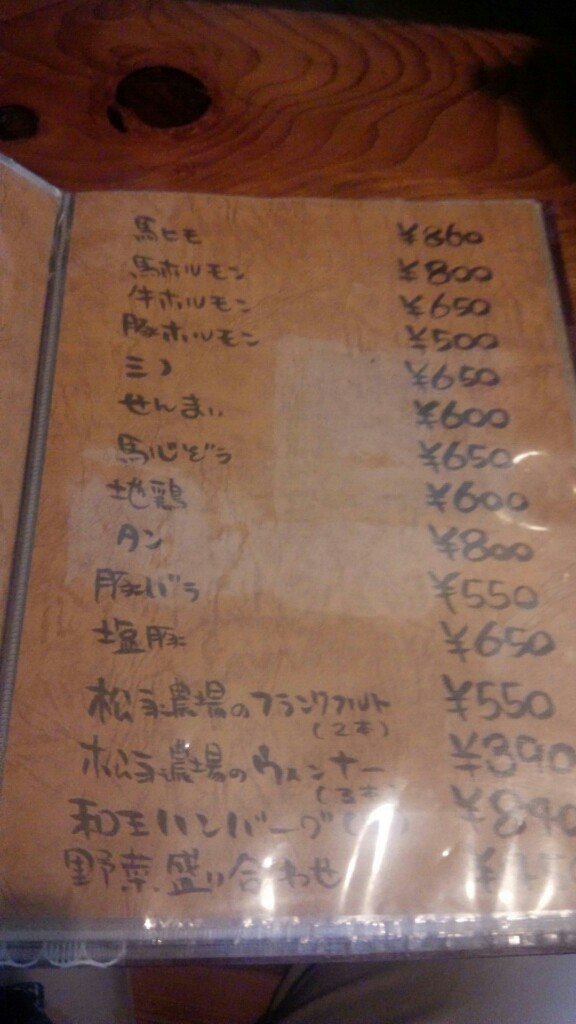 馬ヒモ ¥860
馬ホルモン ¥800
牛ホルモン ¥650
豚ホルモン ¥500
ミノ ¥650
せんまい ¥600
馬心ぞう ¥650
地鶏 ¥600
タン ¥800
豚バラ ¥550
塩豚 ¥650
農場のフランクフルト ¥550
(2本)
農場のウィンナー ¥390
(3本)
和王ハンバーグ ¥840
野菜盛り合わせ